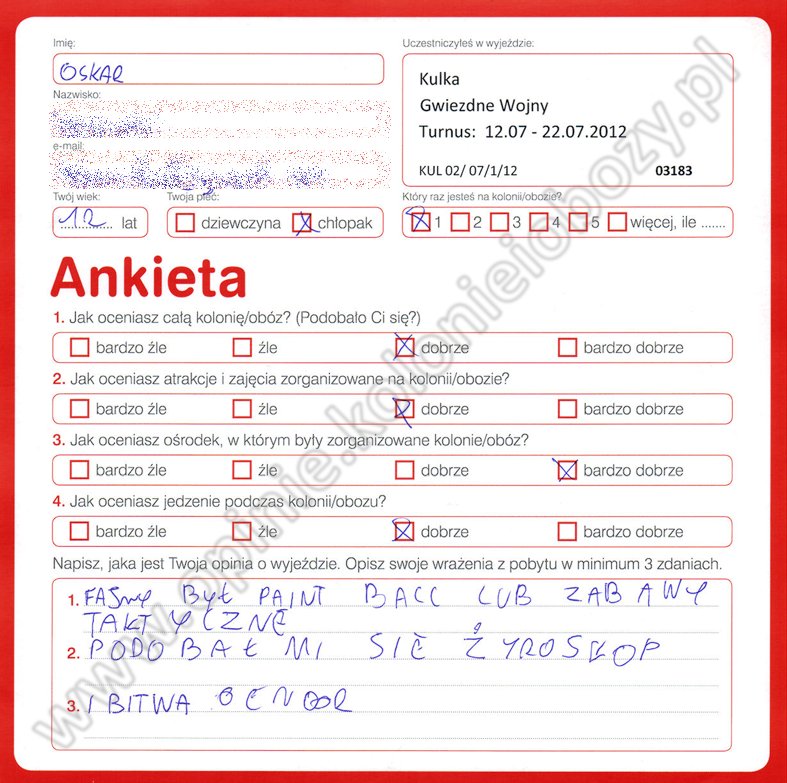 Imię:
OSKAR
Uczestniczyłeś w wyjeździe:
Kulka
Gwiezdne Wojny
Turnus: 12.07 - 22.07.2012
KUL 02/ 07/1/12 03183
Nazwisko:
e-mail:
Twój wiek:
12 lat
Twoja płeć:
dziewczyna chłopak
Który raz jesteś na kolonii/obozie?
1 2 3 4 5 więcej, ile .......
Ankieta
1. Jak oceniasz całą kolonię/obóz? (Podobało Ci się?)
bardzo źle źle dobrze bardzo dobrze
2. Jak oceniasz atrakcje i zajęcia zorganizowane na kolonii/obozie?
bardzo źle źle dobrze bardzo dobrze
3. Jak oceniasz ośrodek, w którym były zorganizowane kolonie/obóz?
bardzo źle źle dobrze bardzo dobrze
4. Jak oceniasz jedzenie podczas kolonii/obozu?
bardzo źle źle dobrze bardzo dobrze
Napisz, jaka jest Twoja opinia o wyjeździe. Opisz swoje wrażenia z pobytu w minimum 3 zdaniach.
1. FAJNY BYŁ PAINT BALL LUB ZABAWY
TAKTYCZNE
2. PODOBAŁ MI SIĘ ŻYROSKOP
3. I BITWA O ENDOR
www.opinie.kolonieiobozy.pl